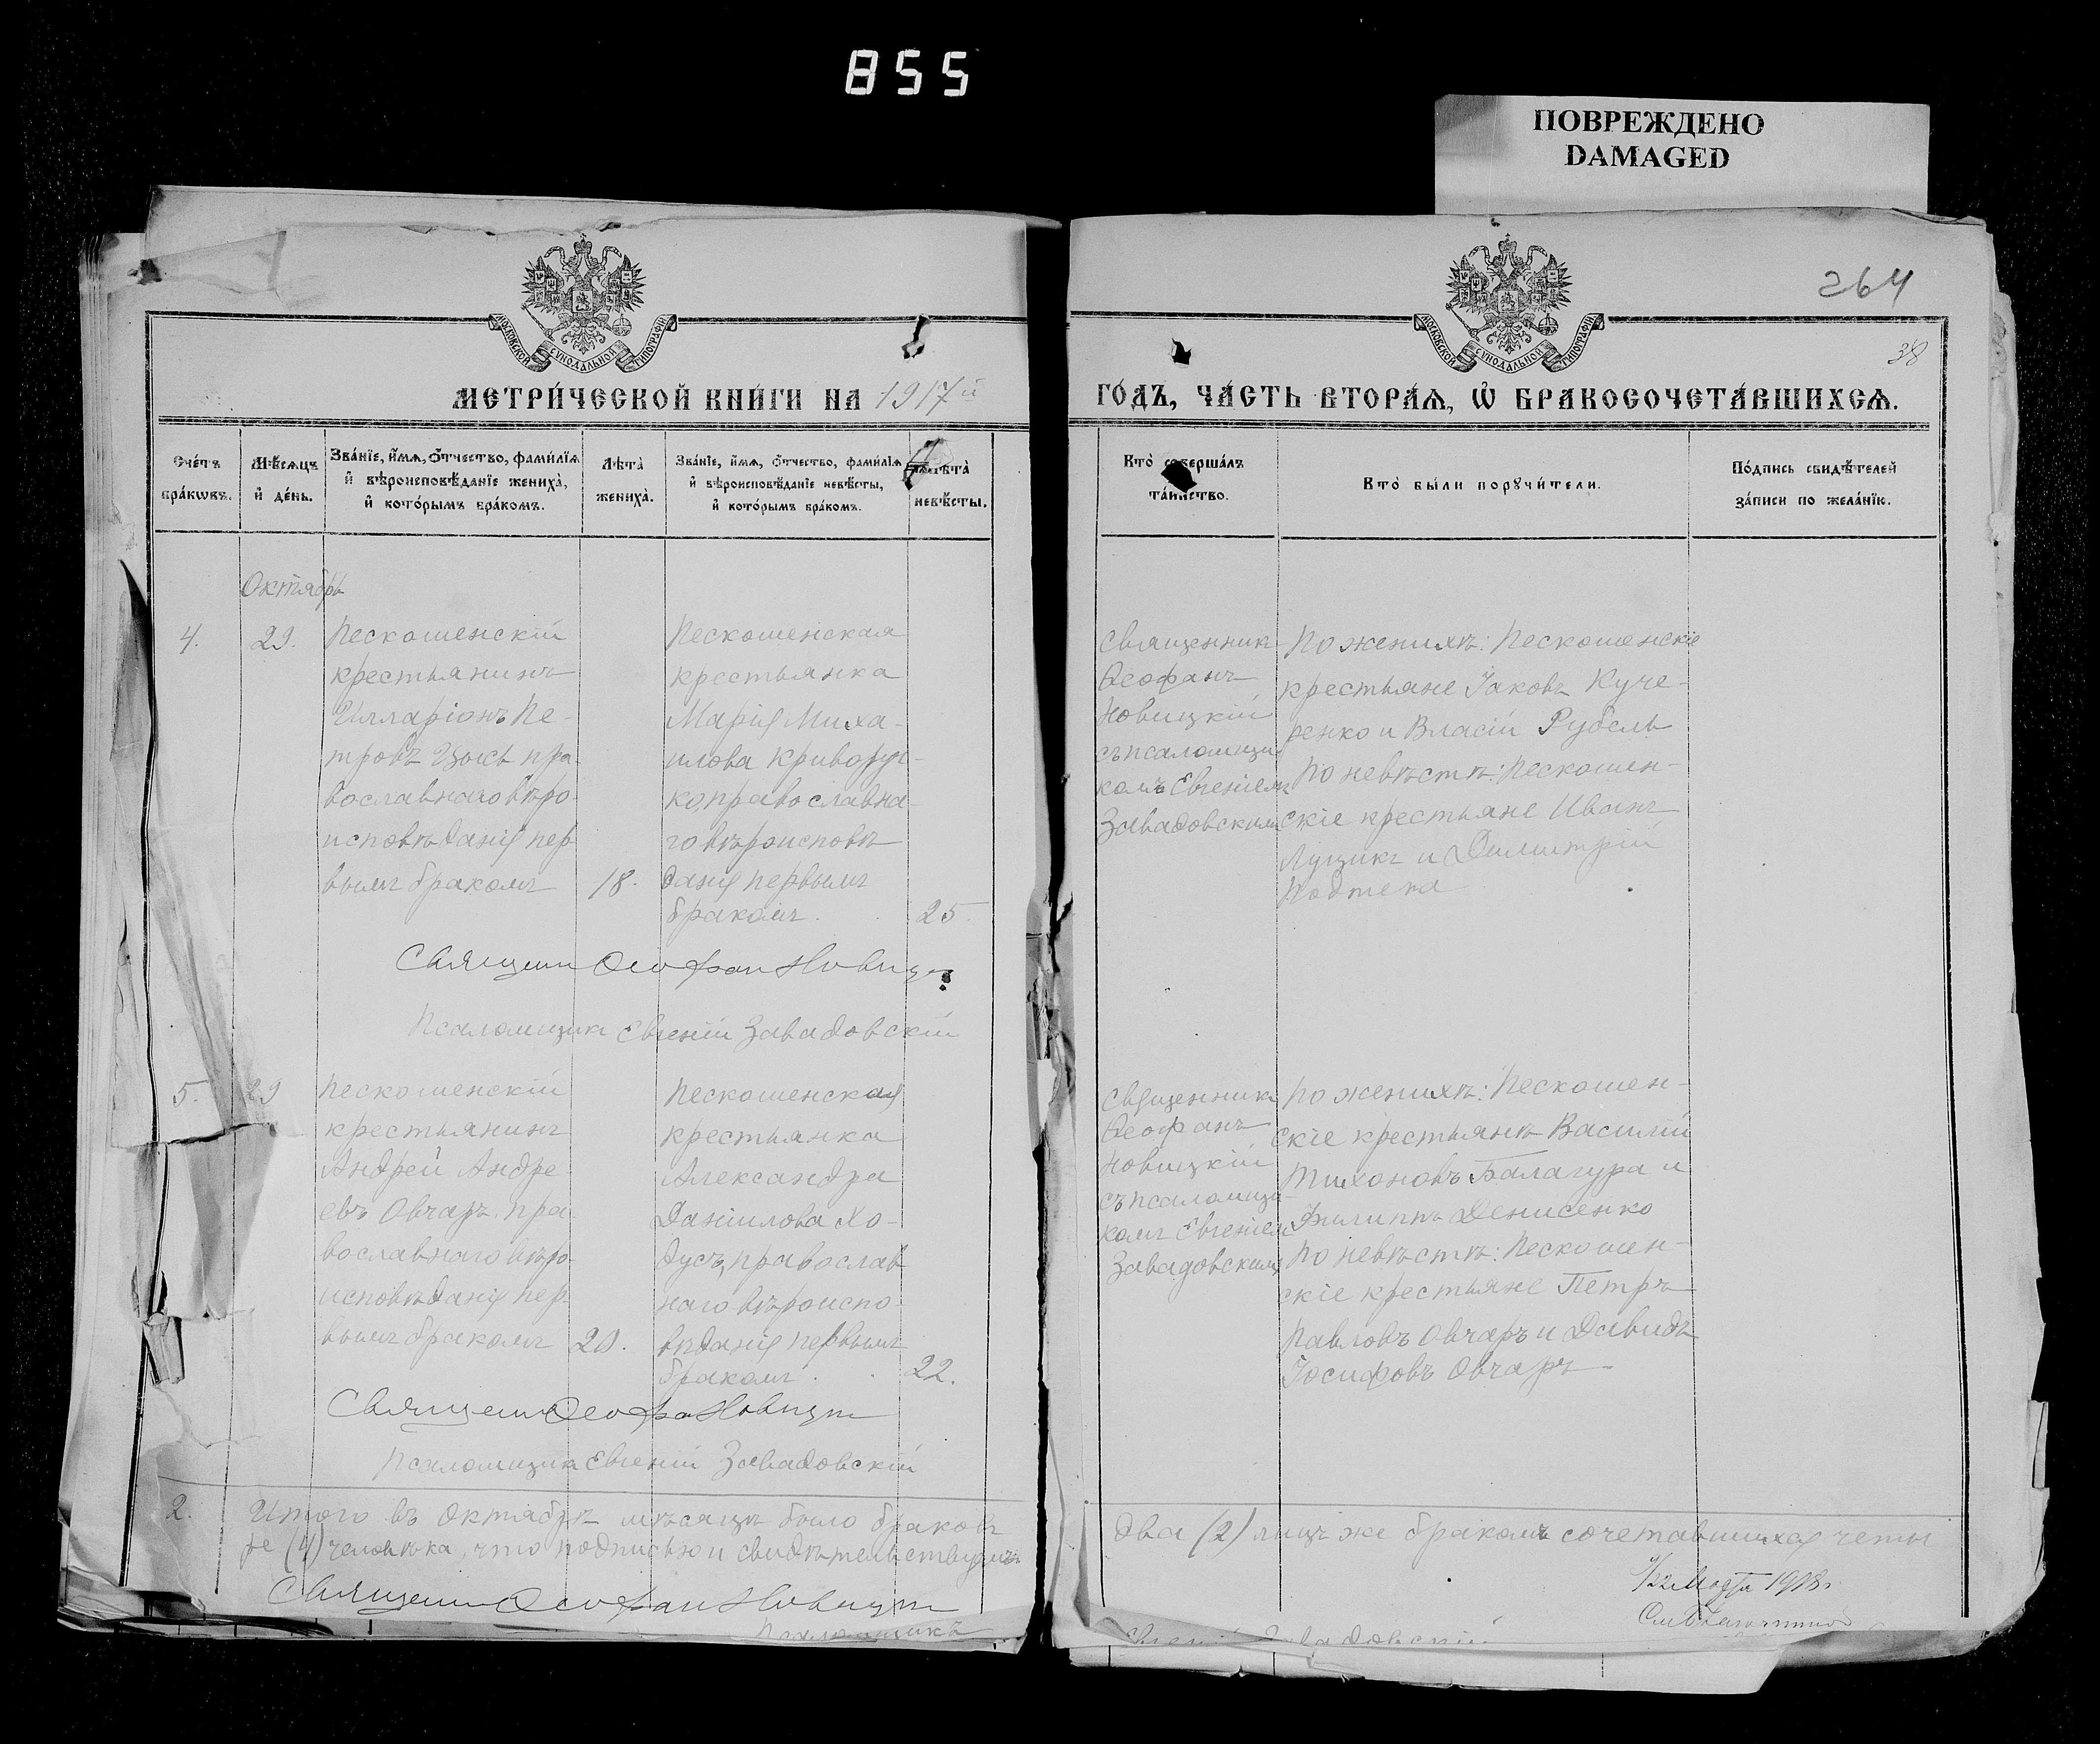 855
ПОВРЕЖДЕНО
DAMAGED
264
38
МОСКОВСКОЙ СѴНОДАЛЬНОЙ ТИПОГРАФІИ
МОСКОВСКОЙ СѴНОДАЛЬНОЙ ТИПОГРАФІИ
МЕТРИ́ЧЕСКОЙ КНИ́ГИ НА 1917й
ГО́ДЪ, ЧА́СТЬ ВТОРА́Я, Ѡ҆ БРАКОСОЧЕТА́ВШИХСѦ.
Сче́тъ
бра́кѡвъ.
Мѣ́сяцъ
и҆ де́нь.
Зва́нїе, и҆́мя, ѻ҆́тчество, фами́лїя
и҆ вѣроисповѣ́данїе жениха̀,
и҆ кото́рымъ бра́комъ.
Лѣ́та̀
жениха̀.
Зва́нїе, и҆́мя, ѻ҆́тчество, фами́лїя
и҆ вѣроисповѣ́данїе невѣ́сты,
и҆ кото́рымъ бра́комъ.
Лѣ́та̀
невѣ́сты.
Кто̀ соверша́лъ
та́инство.
Кто̀ бы́ли порꙋчи́тели.
По́дпись свидѣ́телей
за́писи по жела́нїю.
Октябрь
4.
29.
Пескошенскій
крестьянинъ
Илларіонъ Пе-
тровъ Цысь пра-
вославнаго вѣро-
исповѣданія пер
вымъ бракомъ
18.
Пескошенская
крестьянка
Марія Миха-
илова Криворуч-
ко, православна-
го вѣроисповѣ
данія первымъ
бракомъ.
25.
Священникъ
Ѳеофанъ
Новицкій
съ псаломщи-
комъ Евгеніемъ
Завадовскимъ
По женихѣ: Пескошенскіе
крестьяне Іаковъ Куче-
ренко и Власій Рубель
По невѣстѣ: Пескошен-
скіе крестьяне Иванъ
Луцикъ и Димитрій
Подтепа
Священни Ѳеофан Новицк
Псаломщикъ Евгеній Завадовскій
5.
29
Пескошенскій
крестьянинъ
Андрей Андре
евъ Овчаръ, пра
вославнаго вѣро-
исповѣданія пер-
вымъ бракомъ
20.
Пескошенская
крестьянка
Александра
Даніилова Хо-
дусъ, православ
наго вѣроиспо-
вѣданія первымъ
бракомъ.
22.
Священникъ
Ѳеофанъ
Новицкій
съ псаломщи-
комъ Евгеніем
Завадовскимъ
По женихѣ: Пескошен-
скіе крестьянѣ Василій
Тихоновъ Балагура и
Филиппъ Денисенко
По невѣстѣ: Пескошен-
скіе крестьяне Петръ
Павловъ Овчаръ и Давидъ
Іосифовъ Овчаръ
Священни Ѳеофа Новицк
Псаломщикъ Евгеній Завадовскій
2. Итого въ Октябрѣ мѣсяцѣ было браковъ
два (2) лицъ же бракомъ сочетавшихся четы
ре (4) человѣка, что подписью и свидѣтельствуемъ
Священни Ѳеофан Новицк
Псаломщикъ
Евгеній Завадовскій
9/22 Марта 1918 г.